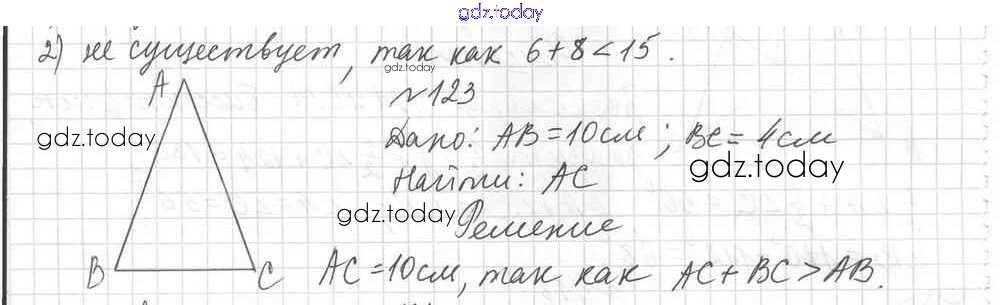 gdz.today
2) не существует, так как 6+8<15.
gdz.today
A
№123
gdz.today
Дано: AB=10см; BC=4см
gdz.today
Найти: AC
gdz.today
Решение
B
C
AC=10см, так как AC+BC>AB.